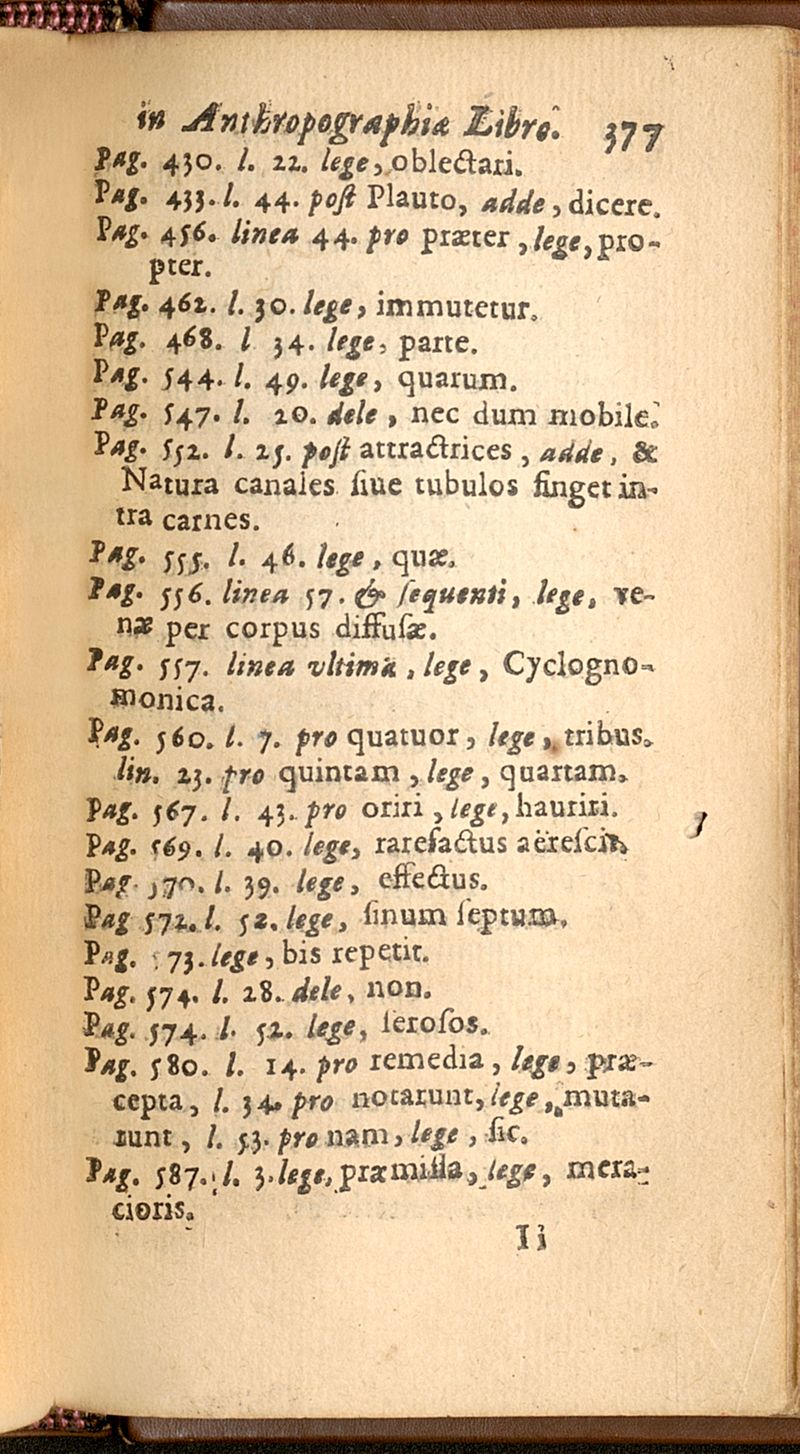 in Anthropographiæ Libro. 377
Pag. 430. l. 22. lege, oblectari.
Pag. 433. l. 44. poſt Plauto, adde, dicere.
Pag. 456. linea 44. pro præter, lege, pro-
pter.
Pag. 462. l. 30. lege, immutetur.
Pag. 468. l 34. lege, parte.
Pag. 544. l. 49. lege, quarum.
Pag. 547. l. 20. dele, nec dum mobile.
Pag. 552. l. 25. poſt attractrices, adde, &
Natura canales ſiue tubulos finget in-
tra carnes.
Pag. 555. l. 46. lege, quæ.
Pag. 556. linea 57. & ſequenti, lege, ve-
næ per corpus diffuſæ.
Pag. 557. linea vltima, lege, Cyclogno-
monica.
Pag. 560. l. 7. pro quatuor, lege, tribus.
lin. 23. pro quintam, lege, quartam.
Pag. 567. l. 43. pro oriri, lege, hauriri.
Pag. 569. l. 40. lege, rarefactus aëreſcit,
Pag. 570. l. 39. lege, effectus.
Pag 572. l. 52. lege, ſinum ſeptum.
Pag. 573. lege, bis repetit.
Pag. 574. l. 28. dele, non.
Pag. 574. l. 52. lege, ſeroſos.
Pag. 580. l. 14. pro remedia, lege, præ-
cepta, l. 34. pro notarunt, lege, muta-
runt, l. 53. pro nam, lege, ſic.
Pag. 587. l. 3. lege, præmiſſa, lege, mera-
cioris.
Ii